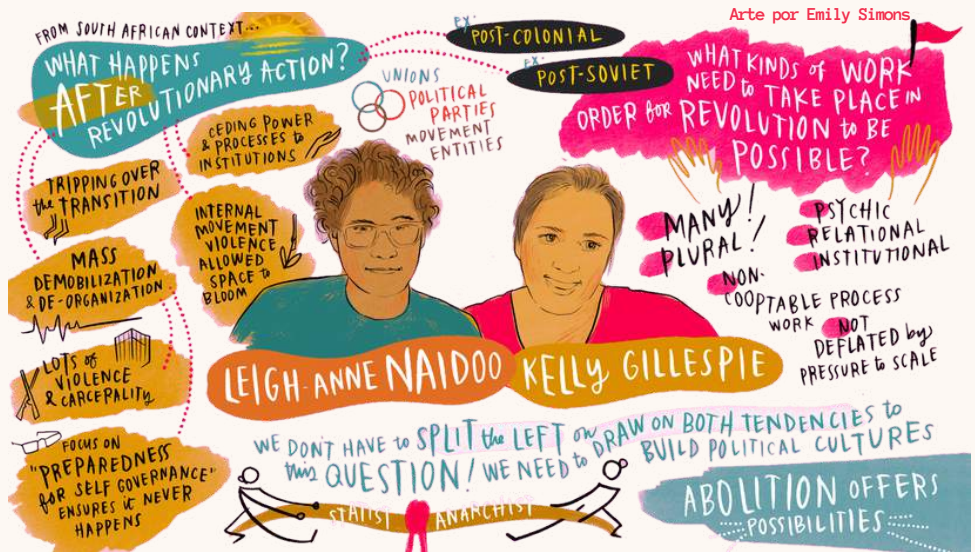 Arte por Emily Simons
FROM SOUTH AFRICAN CONTEXT...
WHAT HAPPENS
AFTER
REVOLUTIONARY ACTION?
ex:
POST-COLONIAL
ex:
POST-SOVIET
UNIONS
POLITICAL
PARTIES
MOVEMENT
ENTITIES
WHAT KINDS of WORK
NEED to TAKE PLACE IN
ORDER for REVOLUTION to BE
POSSIBLE?
CEDING POWER
& PROCESSES to
INSTITUTIONS
TRIPPING OVER
the TRANSITION
INTERNAL
MOVEMENT
VIOLENCE
ALLOWED
SPACE to
BLOOM
MASS
DEMOBILIZATION
& DE-ORGANIZATION
LOTS of
VIOLENCE
& CARCEPALITY
FOCUS ON
"PREPAREDNESS
for SELF GOVERNANCE"
ENSURES it NEVER
HAPPENS
MANY!
PLURAL!
PSYCHIC
RELATIONAL
INSTITUTIONAL
NON-
COOPTABLE PROCESS
WORK NOT
DEFLATED by
PRESSURE to SCALE
LEIGH-ANNE NAIDOO
KELLY GILLESPIE
WE DON'T HAVE to SPLIT the LEFT on
this QUESTION! WE NEED to DRAW ON BOTH TENDENCIES to
BUILD POLITICAL CULTURES
STATIST
ANARCHIST
ABOLITION OFFERS
POSSIBILITIES